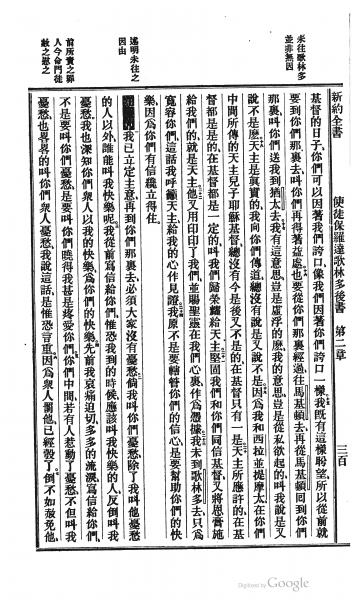 新約全書 使徒保羅達歌林多後書 第二章 三百
未往歌林多
並非無因
基督的日子、你們可以因著我們誇口、像我們因著你們誇口一樣、我既有這樣盼望、所以從前就
要到你們那裏去、叫你們再得著益處、也要從你們那裏經過、往馬基頓去、再從馬基頓囘到你們
那裏、叫你們送我到猶太去、我有這意思、豈是虛浮的麽、我的意思、豈是從私欲起的、叫我說是又
說不是麽、天主是眞實的、我向你們傳道、總沒有說是、又說不是、因爲我和西拉並提摩太在你們
中間所傳的天主兒子耶穌基督、總沒有今是後又不是的、在基督只有一是、天主所應許的、在基
督都是是的、在基督都是一定的、叫我們歸榮耀給天主、堅固我們和你們同信基督、又將恩膏施
給我們的、就是天主、他又用印印了我們、並賜聖靈在我們心裏、作爲憑據、我未到歌林多去、只爲
寬容你們、這話我呼籲天主給我的心作見證、我原不是要轄管你們的信心、是要幫助你們的快
樂、因爲你們有信纔立得住。
述明未往之
因由
我已立定主意、再到你們那裏去、必須大家沒有憂愁、倘我叫你們憂愁、除了我叫他憂愁
的人以外、誰能叫我快樂呢、我從前寫信給你們、惟恐我到的時候、應該叫我快樂的人、反倒叫我
憂愁、我也深知你們衆人以我的快樂、爲你們的快樂、先前我哀痛迫切、多多的流淚、寫信給你們、
前所責之罪
人今命門徒
赦之慰之
不是要叫你們憂愁、是要叫你們曉得我甚是疼愛你們、你們中間、若有人惹動了憂愁、不但叫我
憂愁、也畧畧的叫你們衆人憂愁、我說這話、是惟恐言重、因爲衆人罰他、已經彀了、倒不如赦免他、
Digitized by Google